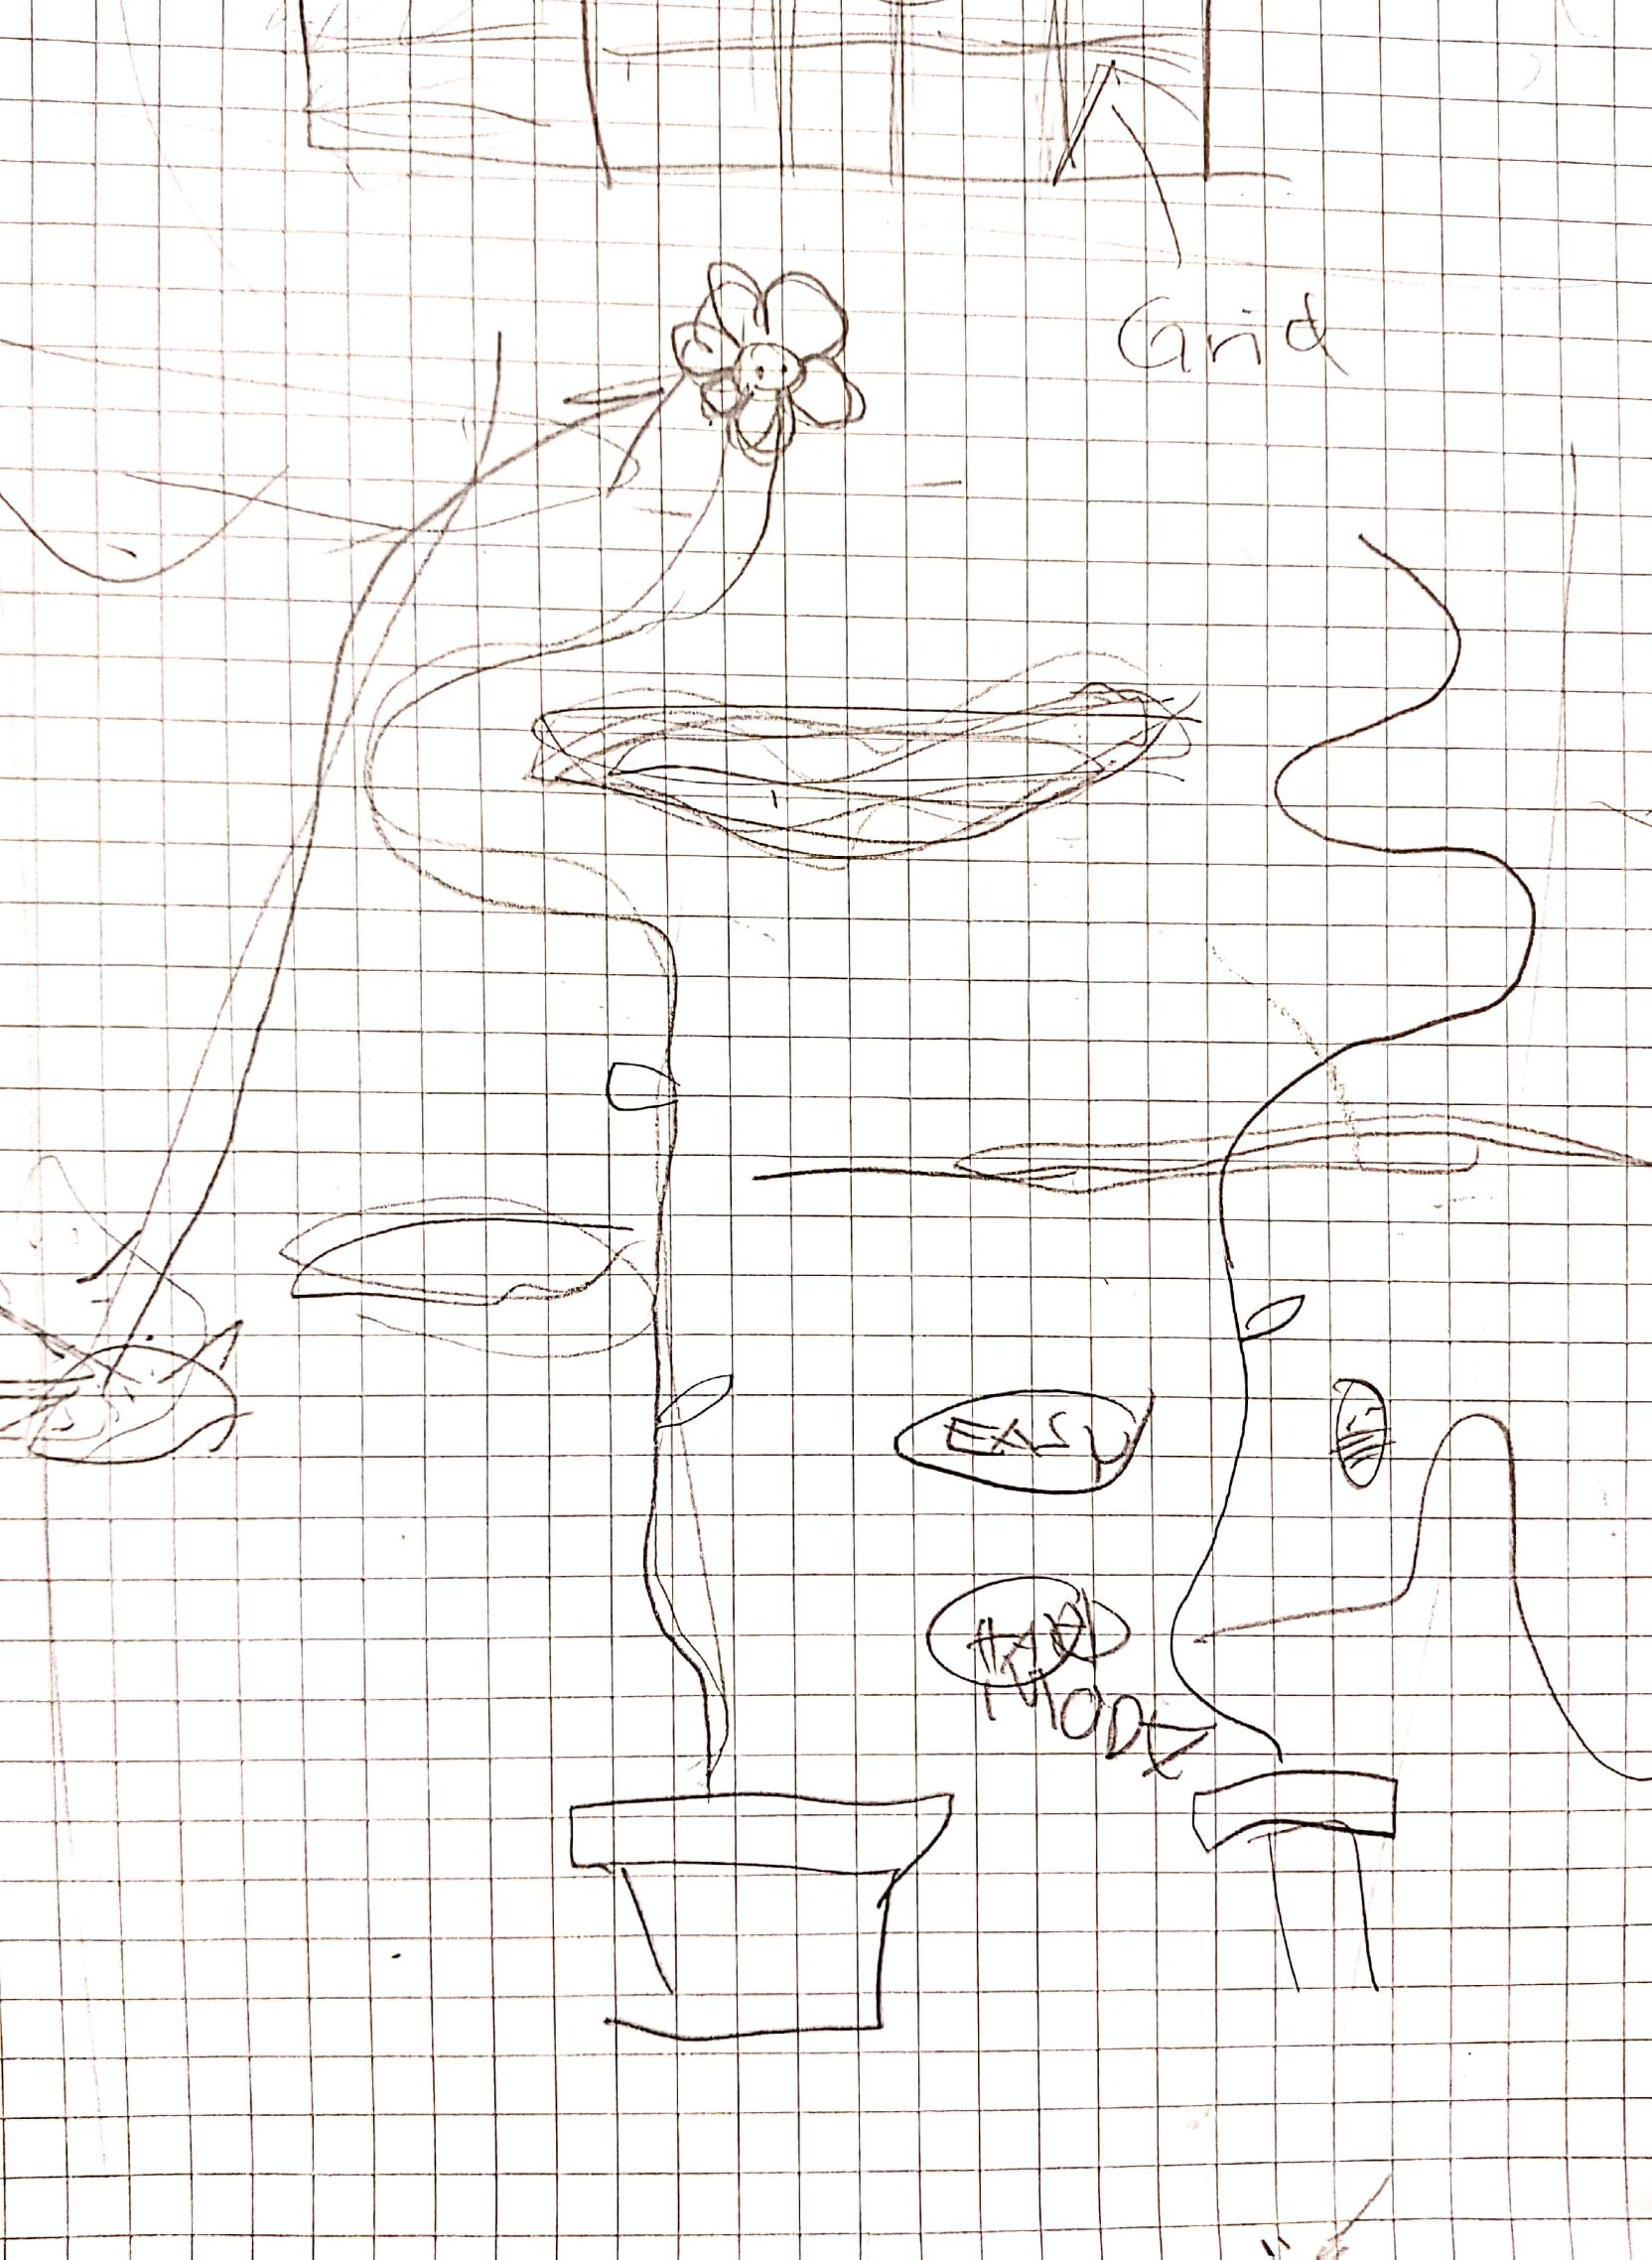 Grid
EASY
HARD
MODE